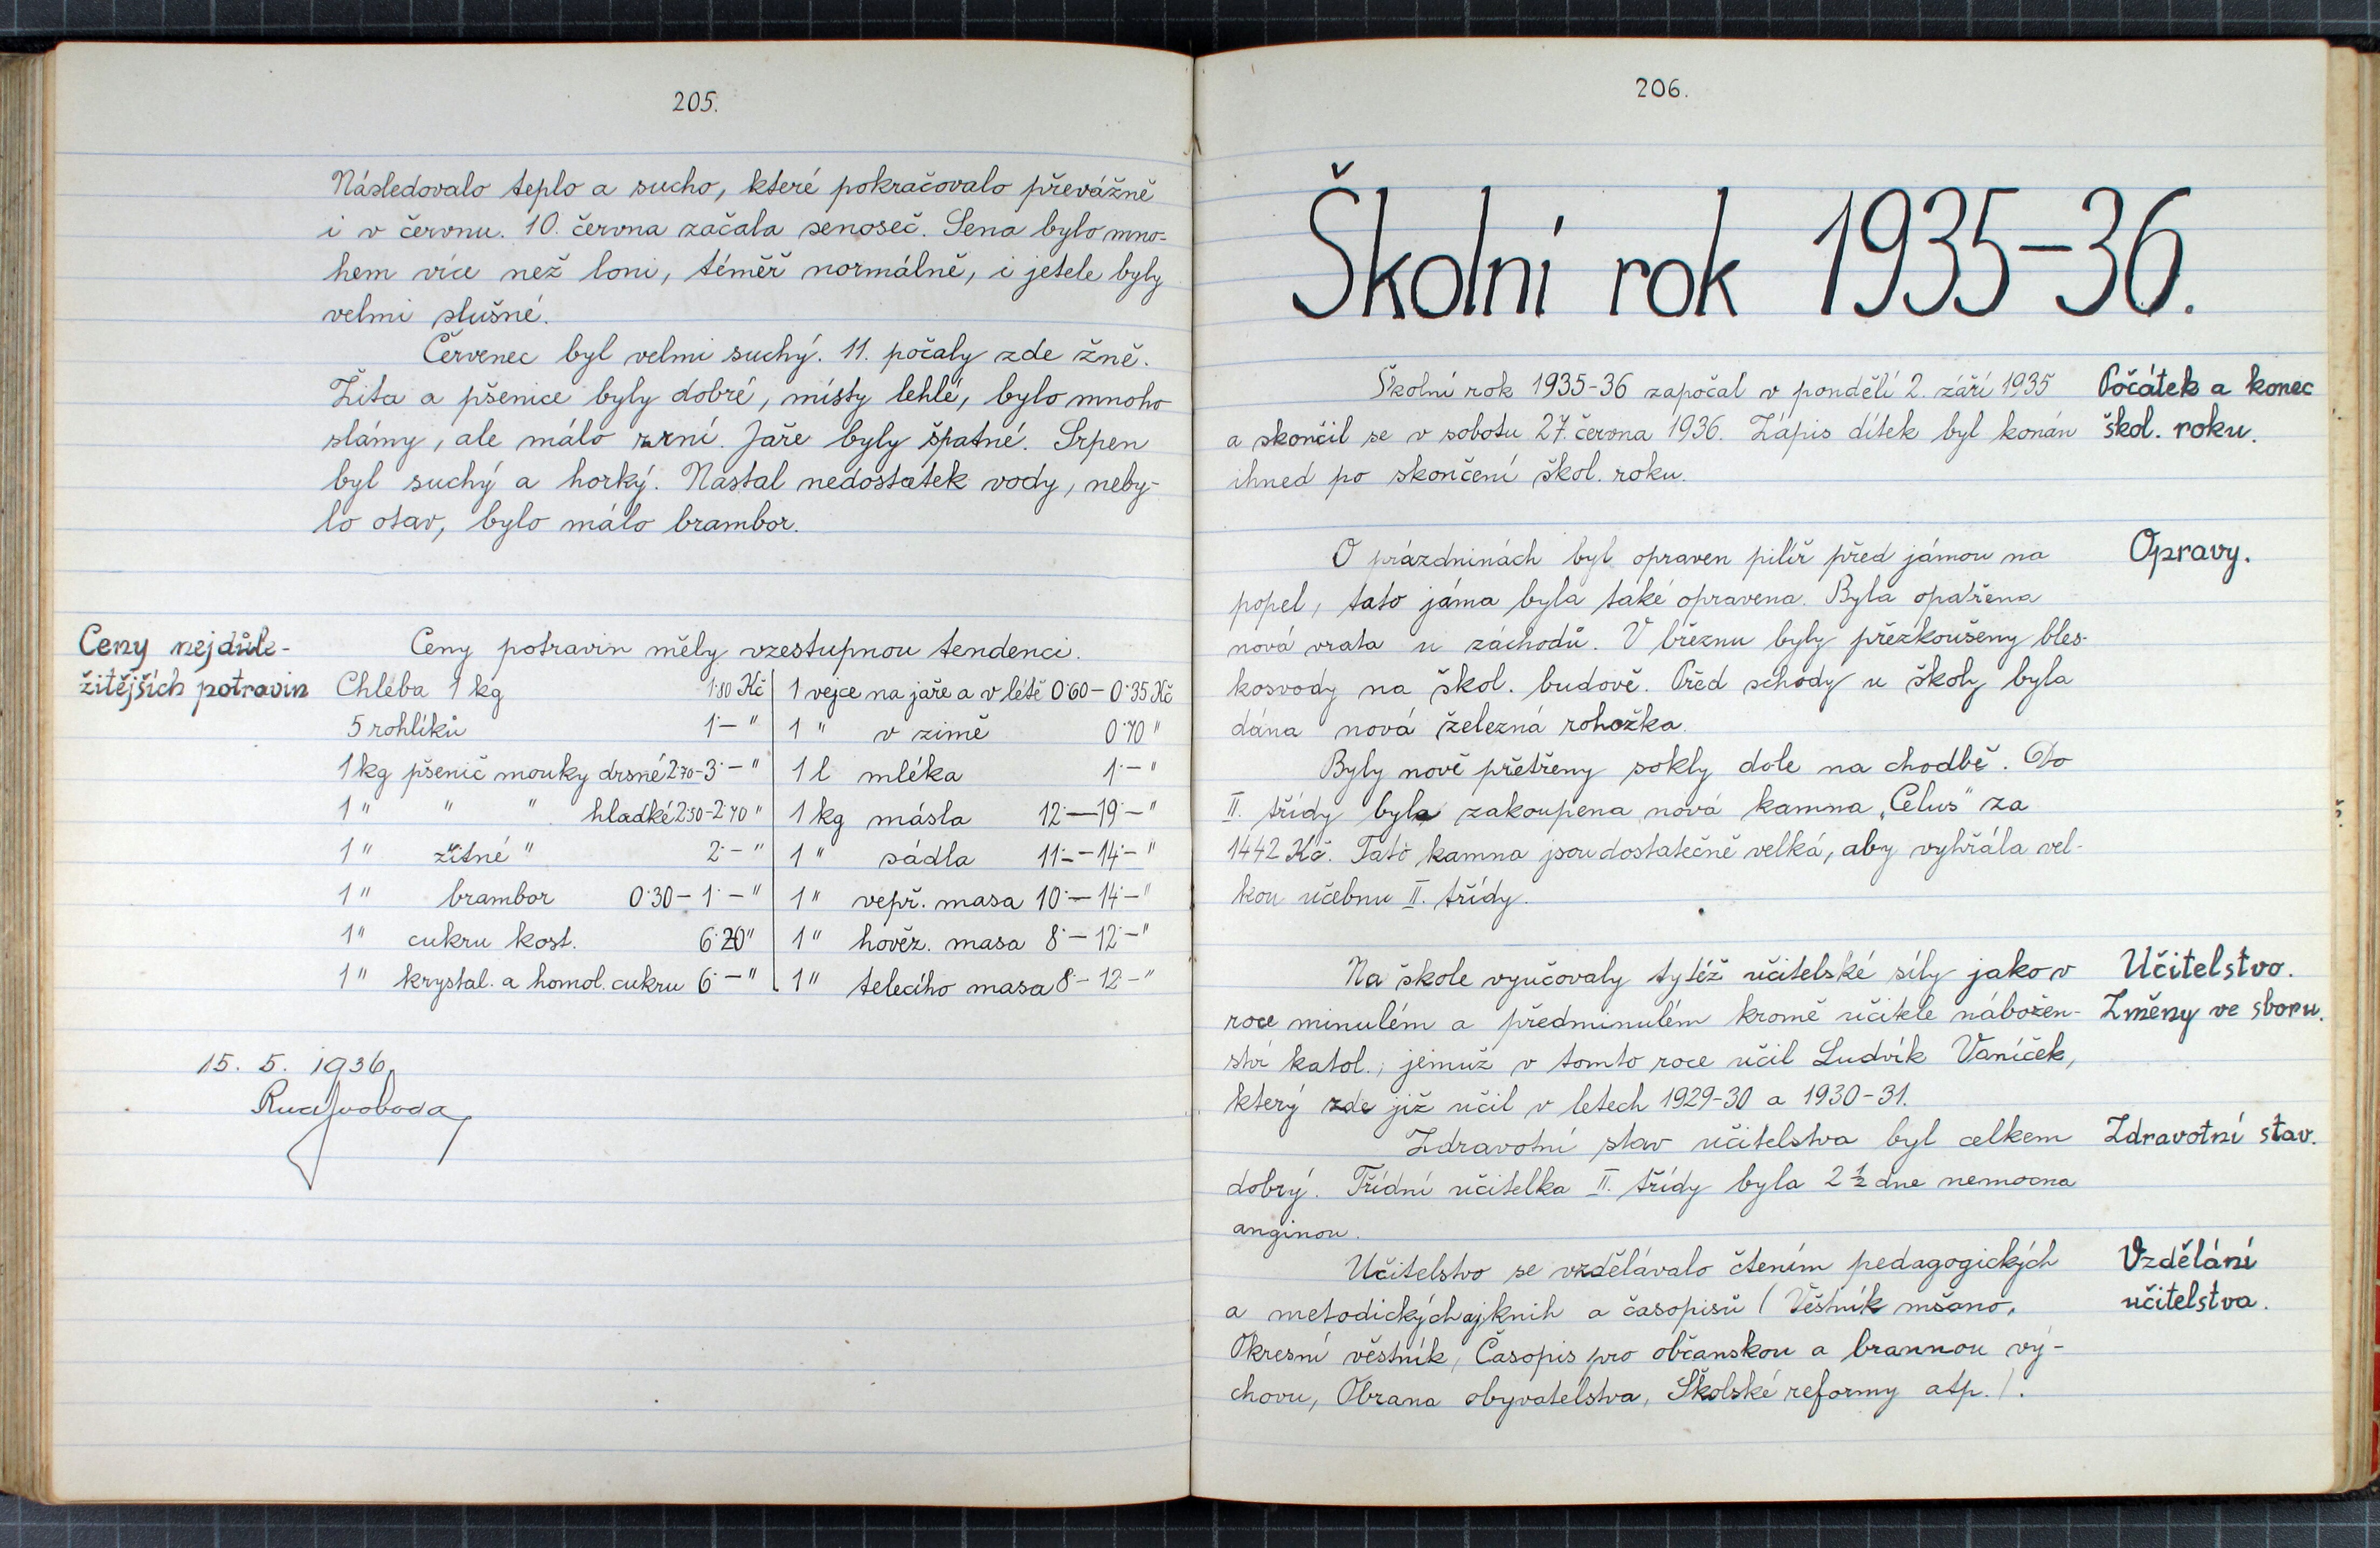 205.
Následovalo teplo a sucho, které pokračovalo převážně
i v červnu. 10. června začala senoseč. Sena bylo mno-
hem více než loni, téměř normálně, i jetele byly
velmi slušné.
Červenec byl velmi suchý. 11. počaly zde žně.
Žita a pšenice byly dobré, místy lehlé, bylo mnoho
slámy, ale málo zrní. Jaře byly špatné. Srpen
byl suchý a horký. Nastal nedostatek vody, neby-
lo otav, bylo málo brambor.
Ceny nejdůle-
žitějších potravin
Ceny potravin měly vzestupnou tendenci.
Chleba 1 kg 1·80 Kč
5 rohlíků 1·— "
1 kg pšenič mouky drsné 2·70-3·— "
1 " " " hladké 2·50-2·70 "
1 " žitné " 2·— "
1 " brambor 0·30 — 1·— "
1 " cukru kost. 6·20 "
1 " krystal. a homol. cukru 6·— "
1 vejce na jaře a v létě 0·60 — 0·35 Kč
1 " v zimě 0·70 "
1 l mléka 1·— "
1 kg másla 12·—19·— "
1 " sádla 11·—14·— "
1 " vepř. masa 10·—14·— "
1 " hověz. masa 8·—12·— "
1 " telecího masa 8·—12·— "
15. 5. 1936
Rud Svoboda
206.
Školní rok 1935-36.
Školní rok 1935-36 započal v pondělí 2. září 1935
a skončil se v sobotu 27. června 1936. Zápis dítek byl konán
ihned po skončení škol. roku.
Počátek a konec
škol. roku.
O prázdninách byl opraven pilíř před jámou na
popel, tato jáma byla také opravena. Byla opatřena
nová vrata u záchodů. V březnu byly přezkoušeny bles-
kosvody na škol. budově. Před schody u školy byla
dána nová železná rohožka.
Byly nově přetřeny sokly dole na chodbě. Do
II. třídy byla zakoupena nová kamna „Celus" za
1442 Kč. Tato kamna jsou dostatečně velká, aby vyhřála vel-
kou učebnu II. třídy.
Opravy.
Na škole vyučovaly tytéž učitelské síly jako v
roce minulém a předminulém kromě učitele nábožen-
ství katol., jemuž v tomto roce učil Ludvík Vaníček,
který zde již učil v letech 1929-30 a 1930-31.
Učitelstvo.
Změny ve sboru.
Zdravotní stav učitelstva byl celkem
dobrý. Třídní učitelka II. třídy byla 2 ½ dne nemocna
anginou.
Zdravotní stav.
Učitelstvo se vzdělávalo čtením pedagogických
a metodických knih a časopisů (Věstník mšano,
Okresní věstník, Časopis pro občanskou a brannou vý-
chovu, Obrana obyvatelstva, Školské reformy atp.).
Vzdělání
učitelstva.